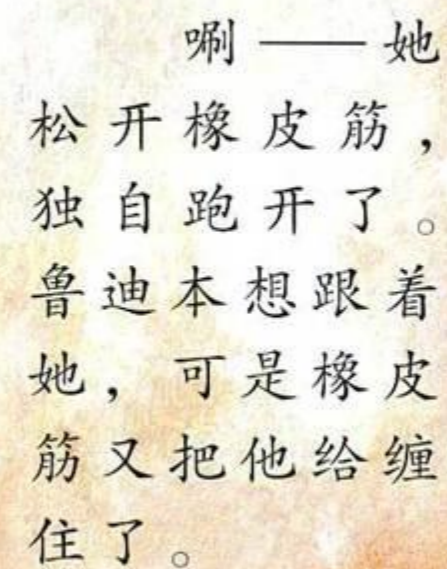 唰——她
松开橡皮筋，
独自跑开了。
鲁迪本想跟着
她，可是橡皮
筋又把他给缠
住了。